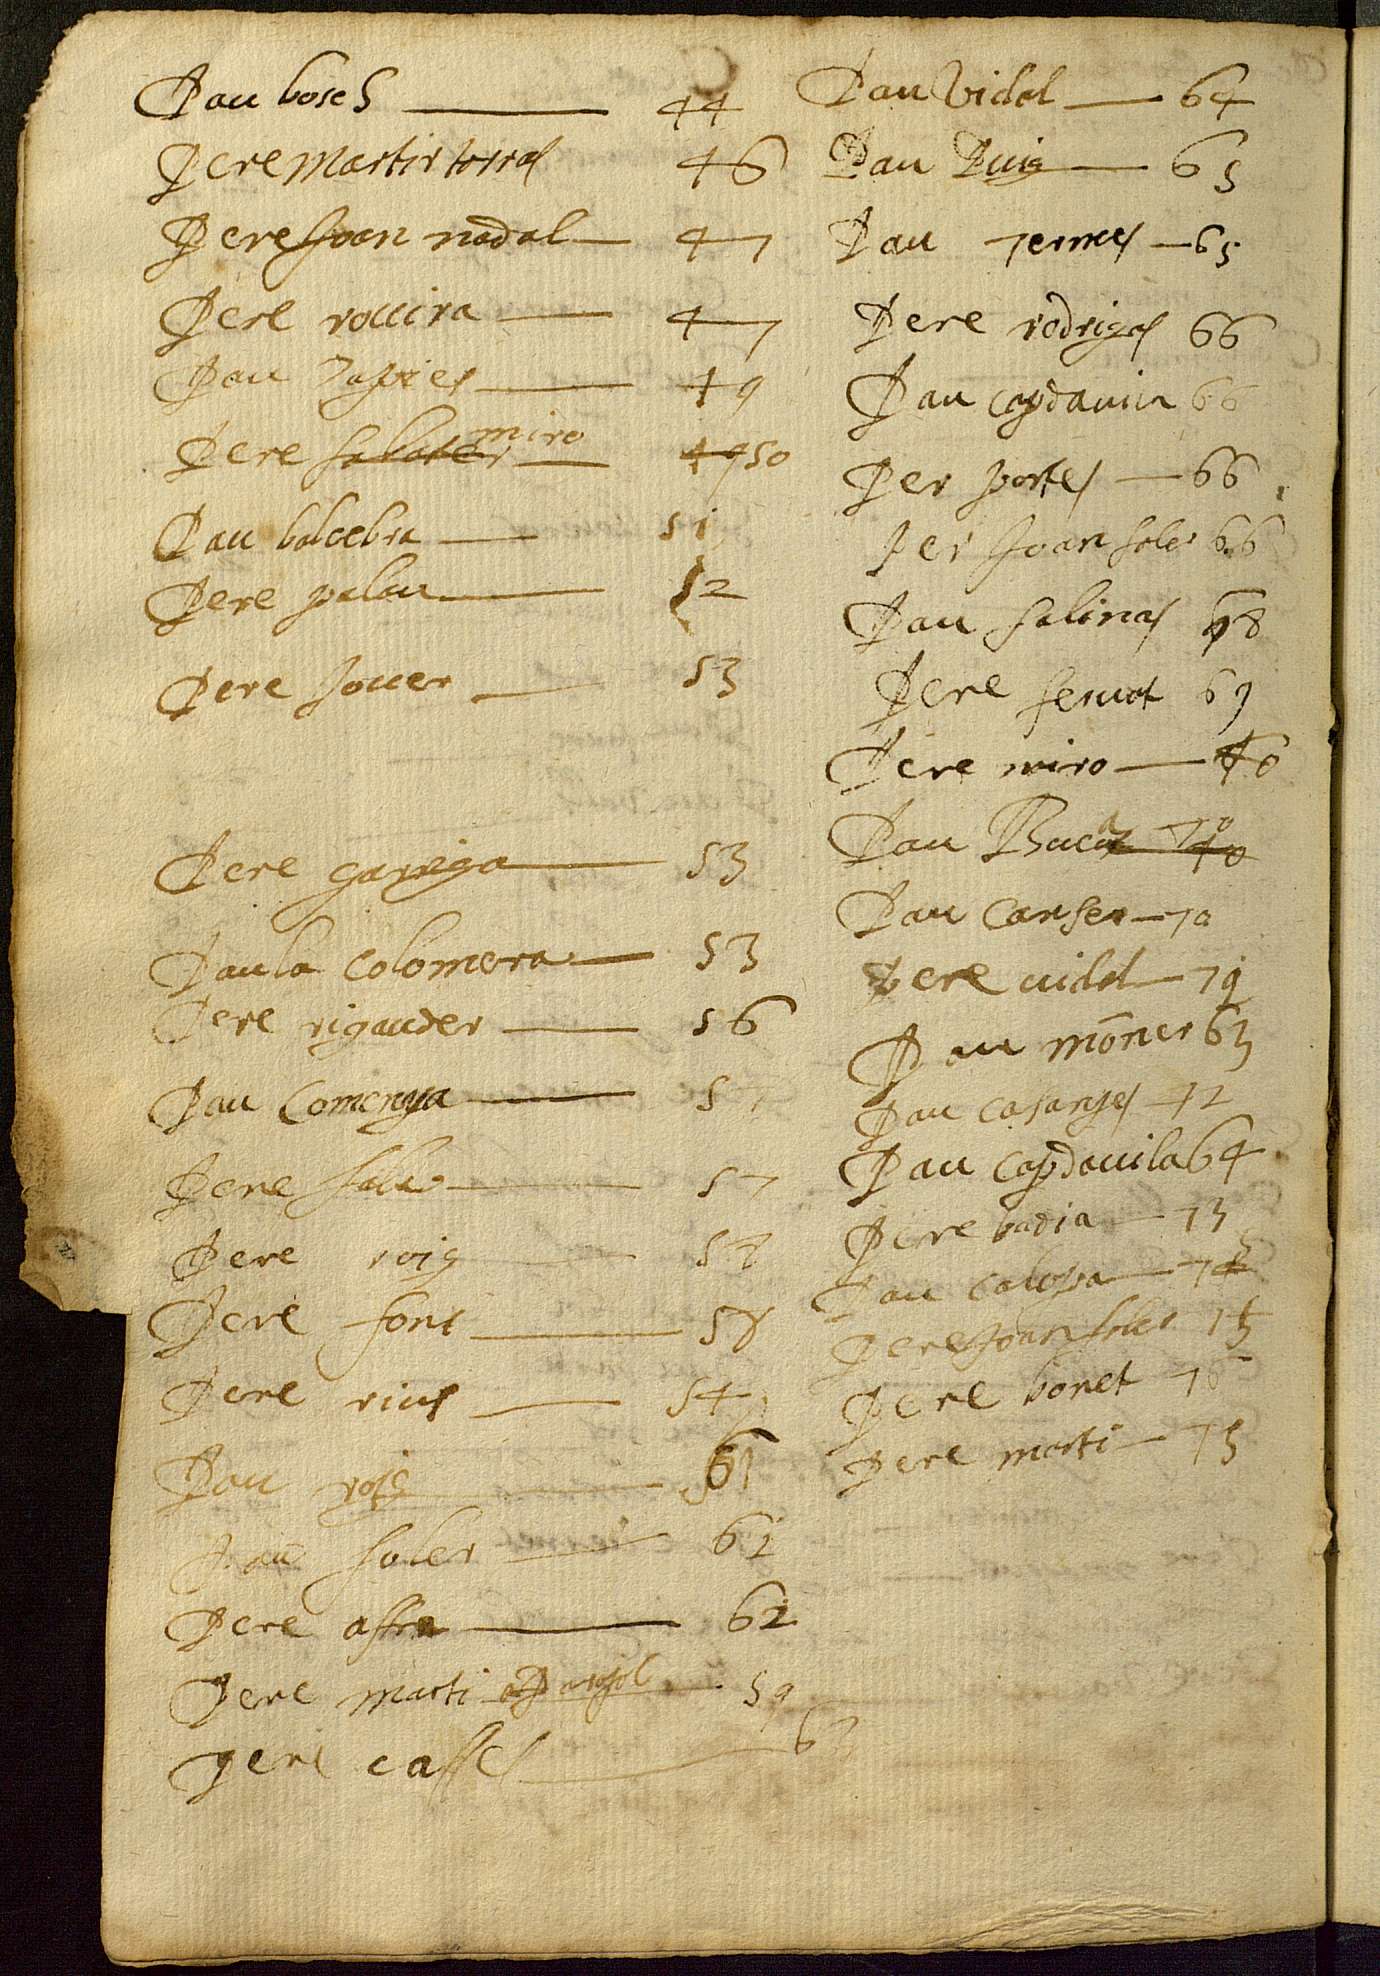 Pau bosch 44
Pere martir torras 46
Pere Joan nadal 47
Pere rovira 47
Pau tapies 49
Pere sabater miro 49 50
Pau balcebra 51
Pere palau 52
Pere Jover 53
Pere garriga 53
Paula colomera 53
Pere rigauder 56
Pau Comenya 57
Pere soler 57
Pere roig 57
Pere font 58
Pere rius 54
Pau roig 61
Pau soler 62
Pere assra 62
Pere marti 59
pere casses 63
Pau Vidal 64
Pau Puig 65
Pau termes 65
Pere rodrigas 66
Pau capdavila 66
Per portes 66
Per Joan soler 66
Pau salinas 68
Pere servat 69
Pere miro 70
Pau 70
Pau Canser 70
Pere vidal 79
Pau mōner 63
Pau casanyes 72
Pau capdavila 64
Pere badia 73
Pau calopa 75
Pere Joan soler 75
Pere bonet 76
Pere marti 75